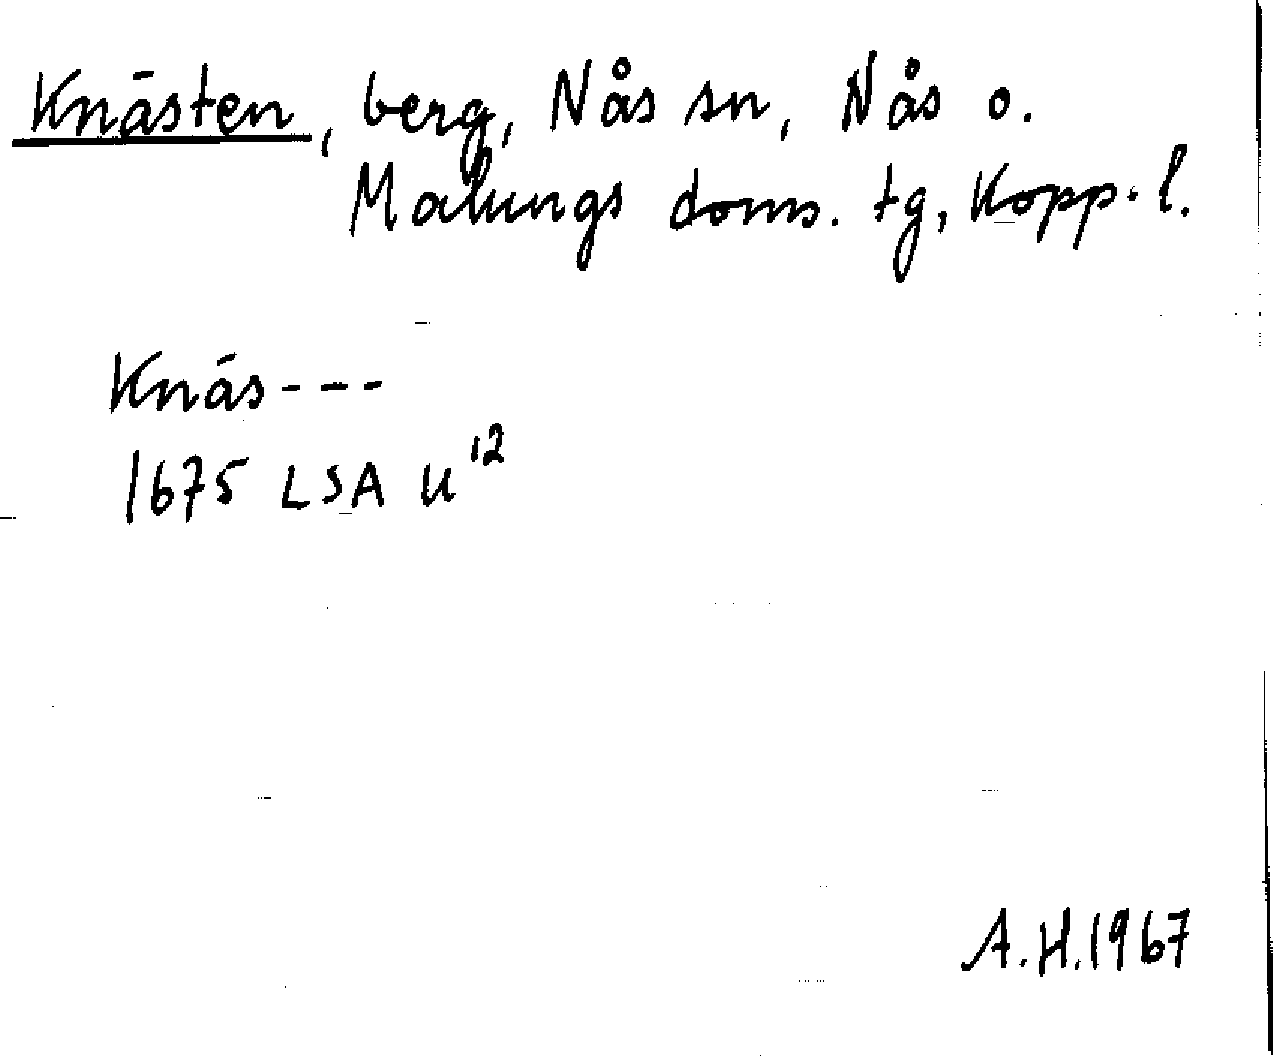 Knästen, berg, Nås sn, Nås o.
Malungs doms. tg, Kopp. l.
Knäs---
1675 LSA U12
A.H.1967